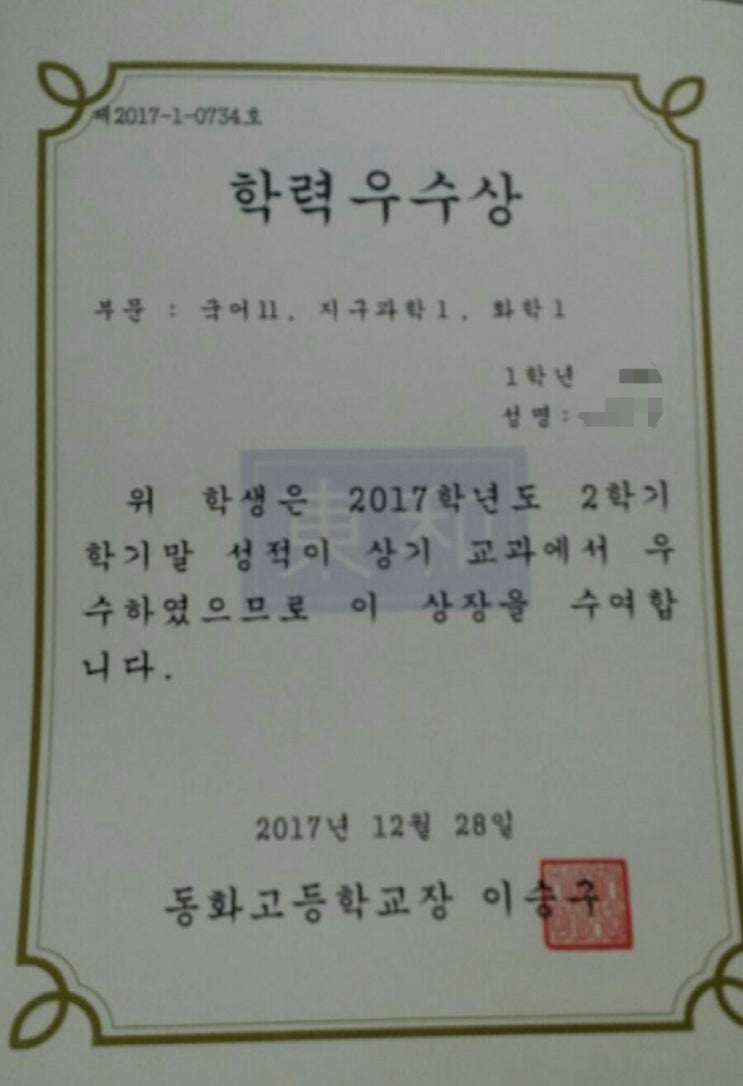 제2017-1-0734호
학력우수상
부문 : 국어II, 지구과학1, 화학1
1학년
성명 :
위 학생은 2017학년도 2학기
학기말 성적이 상기 교과에서 우
수하였으므로 이 상장을 수여합
니다.
東和
2017년 12월 28일
동화고등학교장 이승구